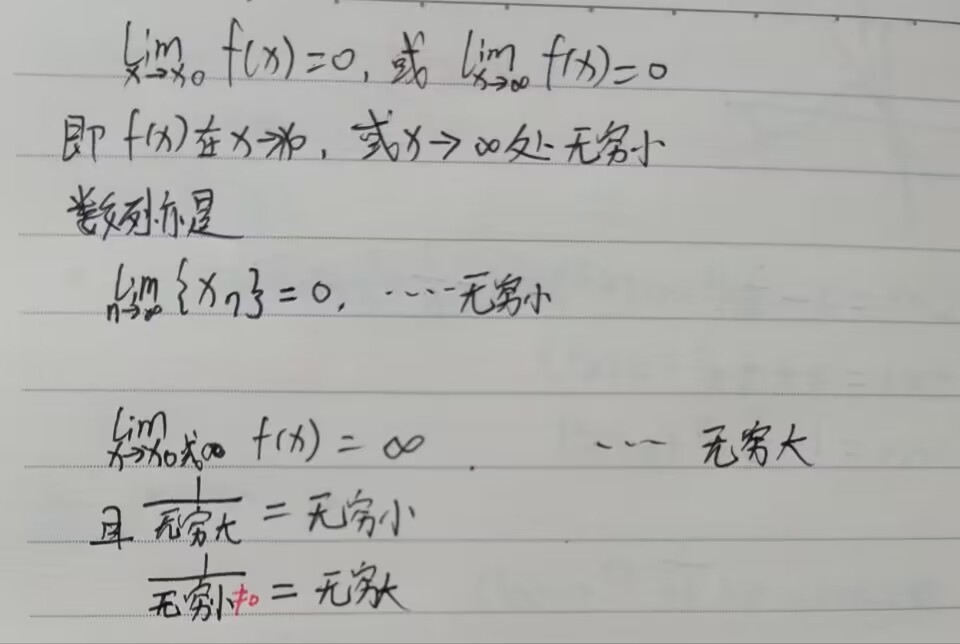 lim x→x₀ f(x)=0, 或 lim x→∞ f(x)=0
即 f(x)在x→x₀, 或x→∞处无穷小
数列亦是
lim n→∞ {xₙ}=0, ……无穷小
lim x→x₀或∞ f(x)=∞ …… 无穷大
且 1/无穷大 = 无穷小
1/无穷小≠0 = 无穷大